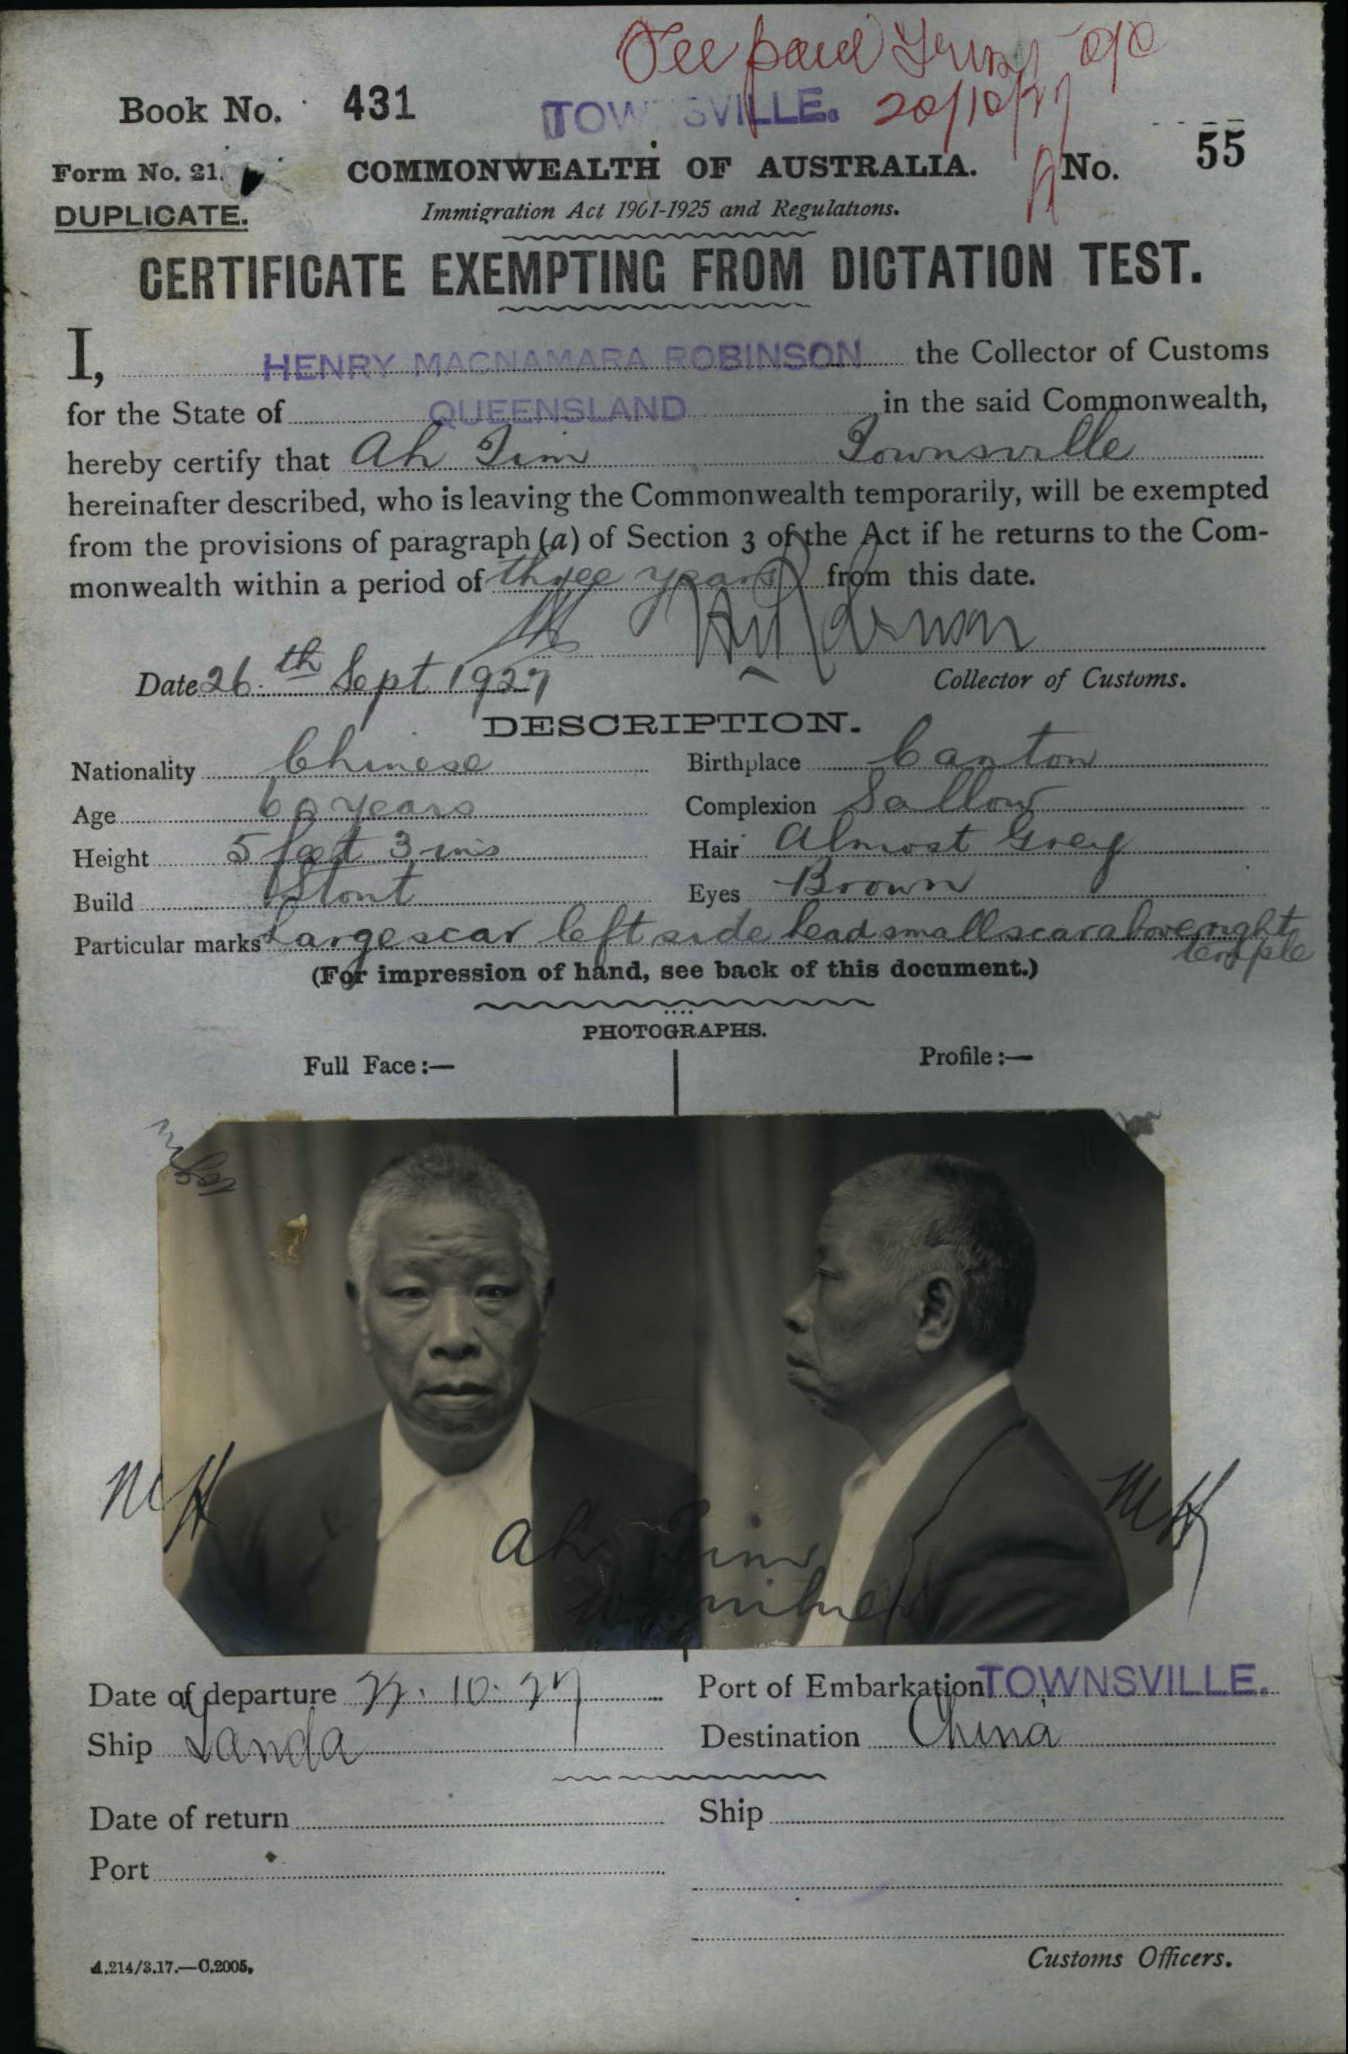 Fee paid
20/10/27
Book No. 431
TOWNSVILLE.
Form No. 21.
COMMONWEALTH OF AUSTRALIA.
No. 55
DUPLICATE.
Immigration Act 1901-1925 and Regulations.
CERTIFICATE EXEMPTING FROM DICTATION TEST.
I, HENRY MACNAMARA ROBINSON the Collector of Customs
for the State of QUEENSLAND in the said Commonwealth,
hereby certify that Ah Tim Townsville
hereinafter described, who is leaving the Commonwealth temporarily, will be exempted
from the provisions of paragraph (a) of Section 3 of the Act if he returns to the Com-
monwealth within a period of three years from this date.
Date 26th Sept 1927
Collector of Customs.
DESCRIPTION.
Nationality Chinese Birthplace Canton
Age 60 years Complexion Sallow
Height 5 feet 3 ins Hair Almost Grey
Build Stout Eyes Brown
Particular marks Large scar left side head small scar above right
temple
(For impression of hand, see back of this document.)
PHOTOGRAPHS.
Full Face:— Profile:—
MH MH
Ah Tim
Date of departure 22.10.27 Port of Embarkation TOWNSVILLE.
Ship Tanda Destination China
Date of return Ship
Port
A.214/3.17.—C.2005.
Customs Officers.